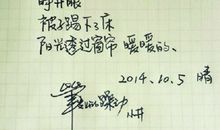 睁开眼
被子踢下了床
阳光透过窗帘 暖暖的.
2014.10.5 晴
笔尖的躁动